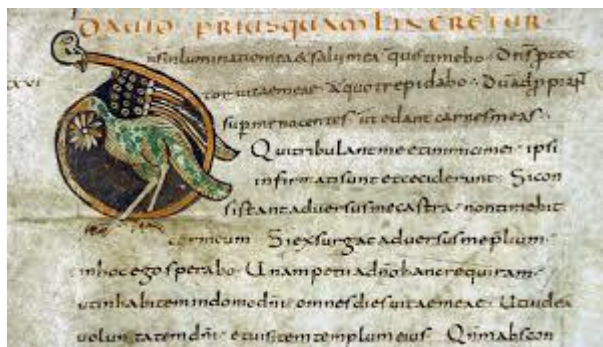 DAVID PRIUSQUAM LINERETUR
nſ inluminatio mea & ſaluſ mea quē timebo · Dnſ protec
XXVI
tor uitae meae a quo trepidabo · Dū adꝓpiant
ſup me nocenteſ ut edant carneſ meaſ ·
Qui tribulant me et inimici mei · ipſi
infirmati ſunt et ceciderunt · Si con
ſiſtant aduerſuſ me caſtra · non timebit
cor meum Si exſurgat aduerſuſ me p̄lium ·
in hoc ego ſperabo · Unam petii a dnō hanc requiram ·
ut inhabitem in domo dnī omneſ dieſ uitae meae · Ut uidea
uoluntatem dnī · et uiſitem templum eiuſ · Qnm abſcon